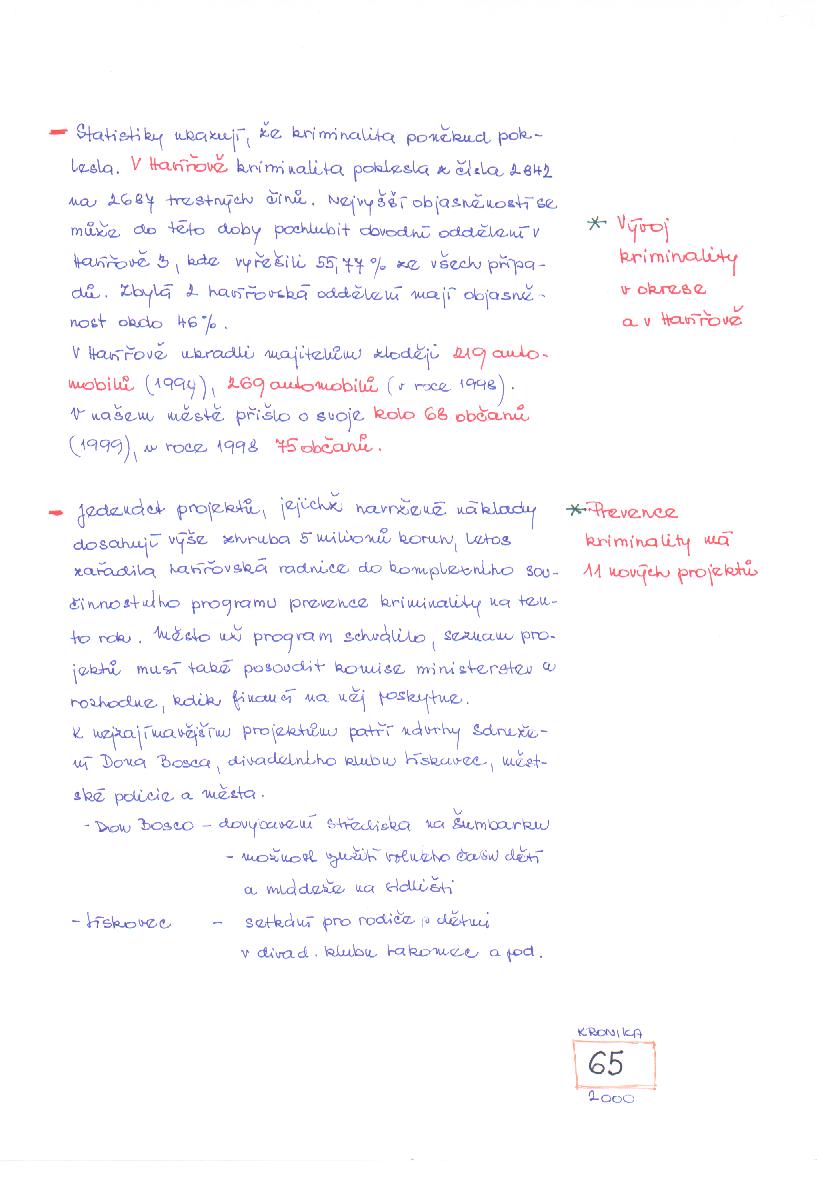 – Statistiky ukazují, že kriminalita poněkud pok-
lesla. V Havířově kriminalita poklesla z čísla 2842
na 2687 trestných činů. Nejvyšší objasněností se
může do této doby pochlubit obvodní oddělení v
Havířově 3, kde vyřešili 55,77 % ze všech přípa-
dů. Zbylá 2 havířovská oddělení mají objasně-
nost okolo 46%.
V Havířově ukradli majitelům zloději 219 auto-
mobilů (1999), 269 automobilů (v roce 1998).
V našem městě přišlo o svoje kolo 68 občanů
(1999), v roce 1998 75 občanů.
* Vývoj
kriminality
v okrese
a v Havířově
– Jedenáct projektů, jejichž navržené náklady
dosahují výše zhruba 5 milionů korun, letos
zařadila havířovská radnice do kompletního sou-
činnostního programu prevence kriminality na ten-
to rok. Město už program schválilo, seznam pro-
jektů musí také posoudit komise ministerstev a
rozhodne, kolik financí na něj poskytne.
K nejzajímavějším projektům patří návrhy Sdruže-
ní Dona Bosca, divadelního klubu Lískavec, měst-
ské policie a města.
- Don Bosco – dovybavení střediska na Šumbarku
- možnost využití volného času dětí
a mládeže na sídlišti
- Lískovec – setkání pro rodiče s dětmi
v divad. klubu rakomec a pod.
* Prevence
kriminality má
11 nových projektů
KRONIKA
65
2000